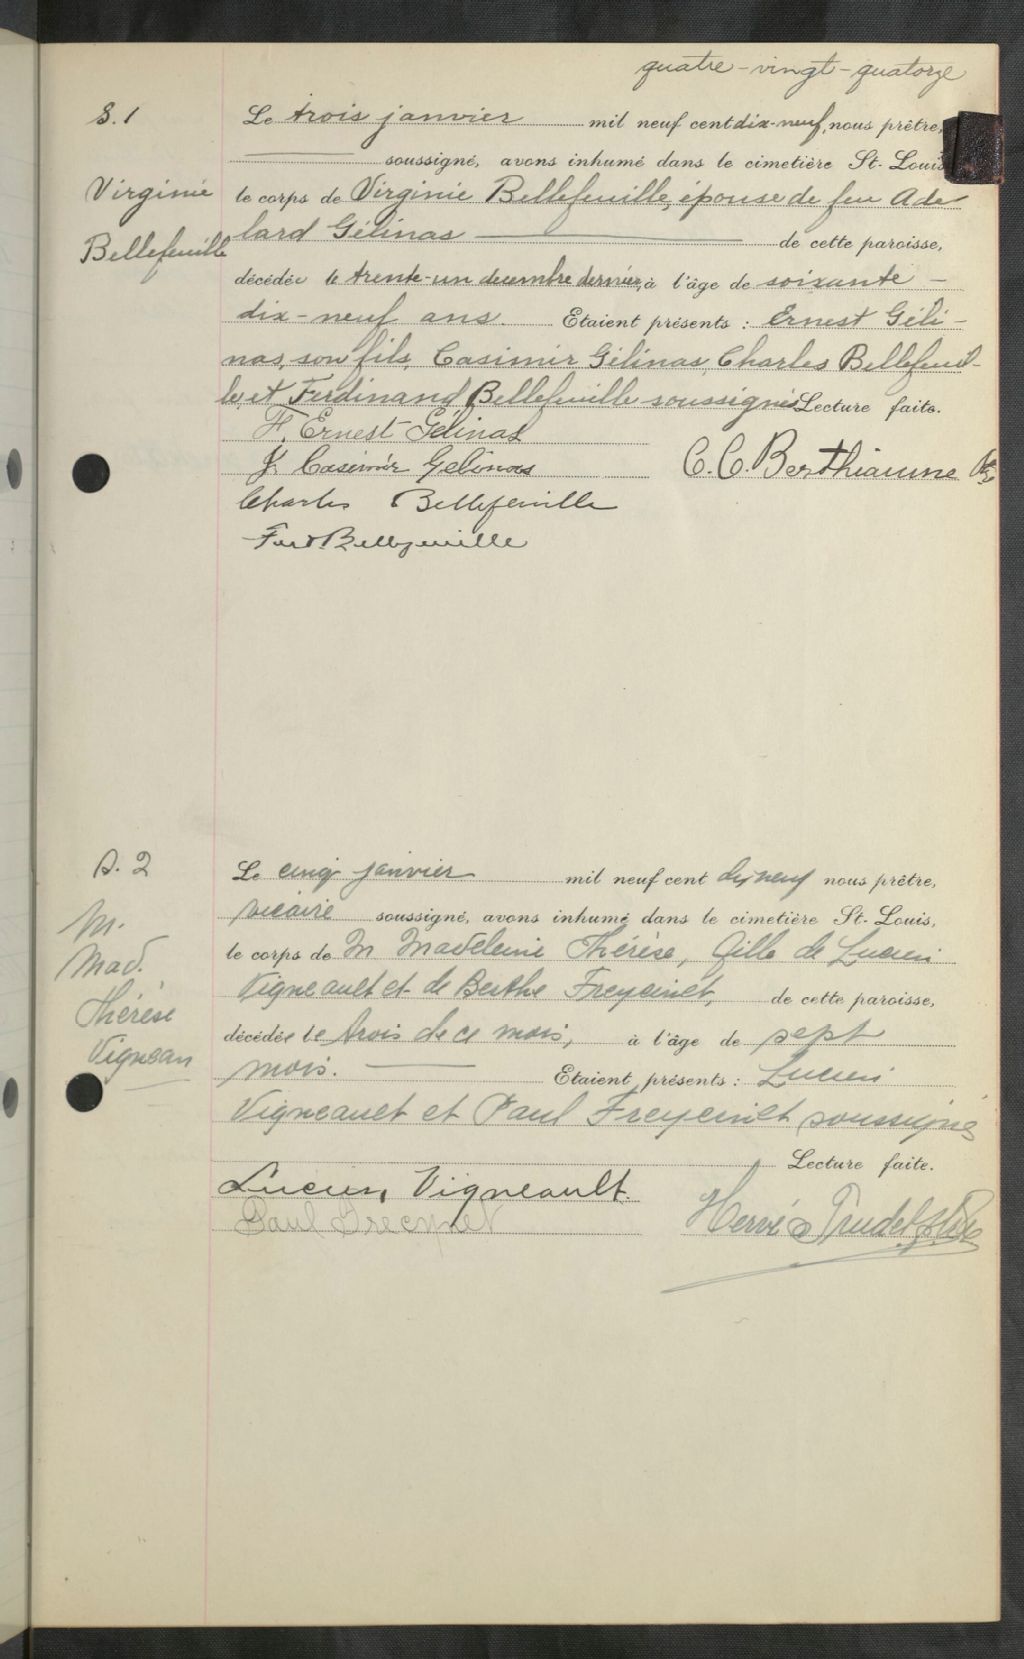 quatre-vingt-quatorze
S. 1
Virginie
Bellefeuille
Le trois janvier mil neuf cent dix-neuf, nous prêtre,
soussigné, avons inhumé dans le cimetière St. Louis
le corps de Virginie Bellefeuille, épouse de feu Adé
lard Gélinas de cette paroisse,
décédée le trente-un decembre dernier, à l'âge de soixante-
dix-neuf ans. Etaient présents : Ernest Géli-
nas, son fils, Casimir Gélinas, Charles Bellefeuil-
le, et Ferdinand Bellefeuille soussignés Lecture faite.
F. Ernest Gélinas
J. Casimir Gelinas C. C. Berthiaume Ptre
Charles Bellefeuille
Ferd. Bellefeuille
S. 2
M.
Mad.
Thérèse
Vigneau
Le cinq janvier mil neuf cent dix neuf nous prêtre,
vicaire soussigné, avons inhumé dans le cimetière St. Louis,
le corps de M Madeleine Thérèse, fille de Lucien
Vigneault et de Berthe Freycinet, de cette paroisse,
décédée le trois de ce mois, à l'âge de sept
mois. Etaient présents : Lucien
Vigneault et Paul Freycinet soussignés
Lecture faite.
Lucien Vigneault
Paul Hervé Trudel ptre